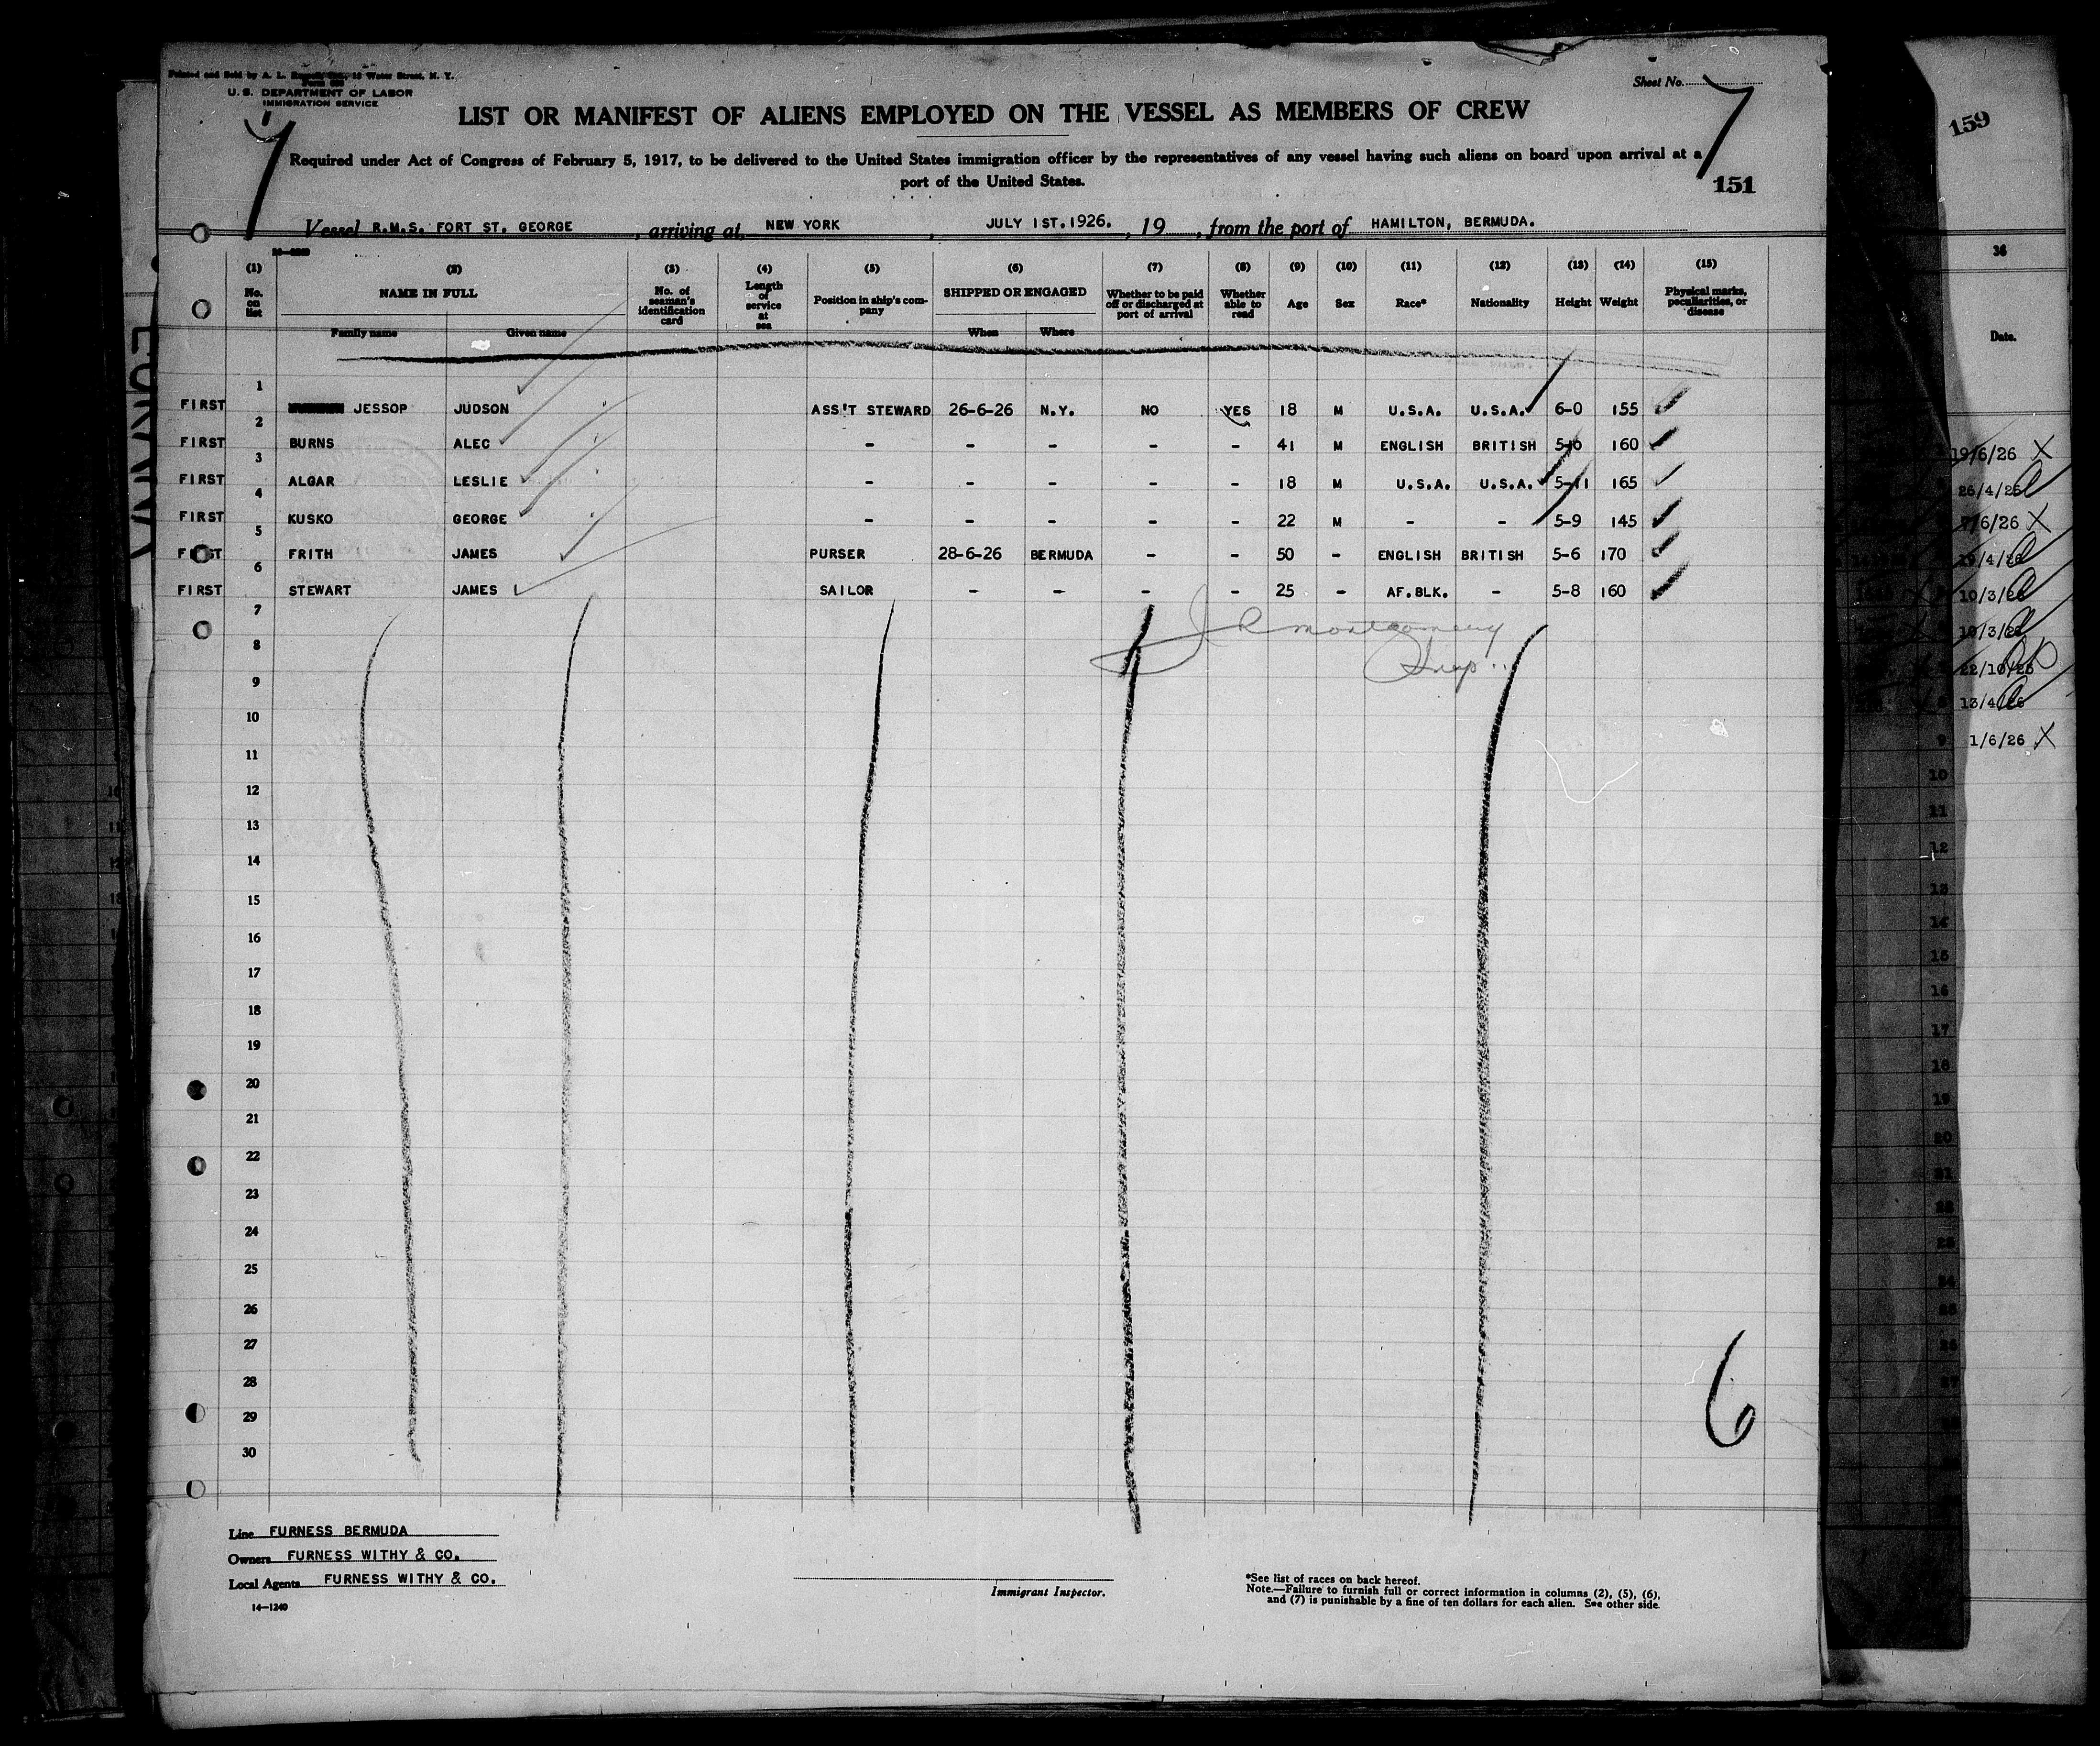 Printed and Sold by A. L. 18 Water Street, N. Y.
U. S. DEPARTMENT OF LABOR
IMMIGRATION SERVICE
Sheet No.
7
7
LIST OR MANIFEST OF ALIENS EMPLOYED ON THE VESSEL AS MEMBERS OF CREW
Required under Act of Congress of February 5, 1917, to be delivered to the United States immigration officer by the representatives of any vessel having such aliens on board upon arrival at a
port of the United States.
151
Vessel R.M.S. FORT ST. GEORGE, arriving at NEW YORK, JULY 1ST.1926., 19, from the port of HAMILTON, BERMUDA.
(1) (2) (3) (4) (5) (6) (7) (8) (9) (10) (11) (12) (13) (14) (15)
No. on list
NAME IN FULL
Family name Given name
No. of seaman's identification card
Length of service at sea
Position in ship's company
SHIPPED OR ENGAGED
When Where
Whether to be paid off or discharged at port of arrival
Whether able to read
Age
Sex
Race*
Nationality
Height
Weight
Physical marks, peculiarities, or disease
1
FIRST JESSOP JUDSON ASS'T STEWARD 26-6-26 N.Y. NO YES 18 M U.S.A. U.S.A. 6-0 155
2
FIRST BURNS ALEC - - - - - 41 M ENGLISH BRITISH 5-10 160
3
FIRST ALGAR LESLIE - - - - - 18 M U.S.A. U.S.A. 5-11 165
4
FIRST KUSKO GEORGE - - - - - 22 M - - 5-9 145
5
FIRST FRITH JAMES PURSER 28-6-26 BERMUDA - - 50 - ENGLISH BRITISH 5-6 170
6
FIRST STEWART JAMES SAILOR - - - - 25 - AF.BLK. - 5-8 160
7
J R Montgomery
Insp..
8
9
10
11
12
13
14
15
16
17
18
19
20
21
22
23
24
25
26
27
28
29
30
6
Line FURNESS BERMUDA
Owners FURNESS WITHY & CO.
Local Agents FURNESS WITHY & CO.
14—1240
Immigrant Inspector.
*See list of races on back hereof.
Note.—Failure to furnish full or correct information in columns (2), (5), (6),
and (7) is punishable by a fine of ten dollars for each alien. See other side.
159
36
Date.
19/6/26 X
26/4/26
/6/26 X
19/4/26
10/3/26
10/3/26
22/10/26
13/4/26
9 1/6/26 X
10
11
12
13
14
15
16
17
18
19
20
21